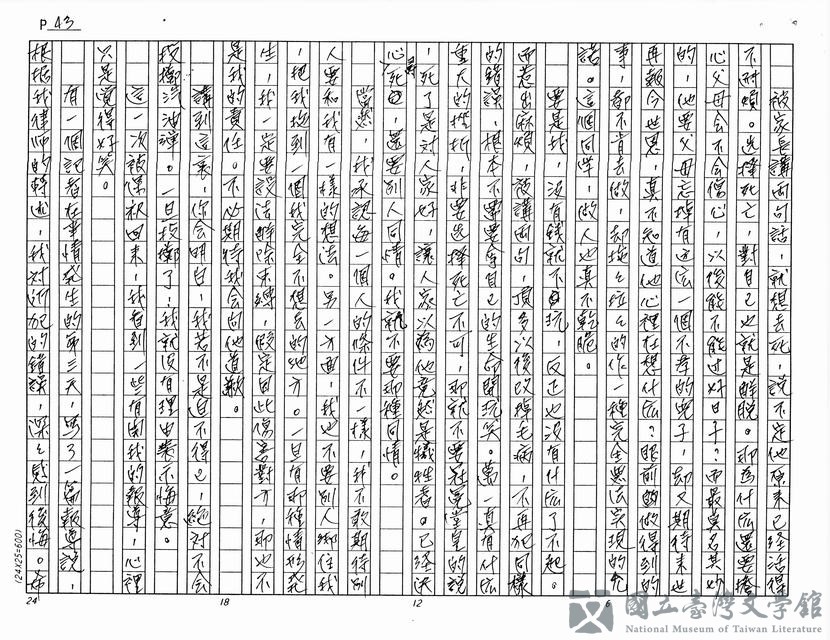 P 43
被家長講兩句話，就想去死，說不定他原來已經活得
不耐煩。選擇死亡，對自己也就是解脫。那為什麼還要擔
心父母會不會傷心，以後能不能過好日子？而最莫名其妙
的，他要父母忘掉有過這麼一個不孝的兒子，却又期待來世
再報今世恩，真不知道他心裡在想什麼？眼前的做得到的
事，都不肯去做，却拖拖拉拉的作一種完全無法實現的允
諾。這個同學，做人也真不乾脆。
要是我，沒有錢就不玩，反正也沒有什麼了不起。
而惹出麻煩，被講兩句，頂多以後改掉毛病，不再犯同樣
的錯誤，根本不需要拿自己的生命開玩笑。萬一真有什麼
重大的挫折，非要選擇死亡不可，那就不要冠冕堂皇的說
，死了是對人家好，讓人家以為他竟然是犧牲者。已經決
心尋死，還要別人同情。我就不要那種同情。
當然，我承認每一個人的條件不一樣，我不敢期待別
人要和我有一樣的想法。另一方面，我也不要別人綁住我
，把我拖到一個我完全不想去的地方。一旦有那種情形發
生，我一定要設法解除束縛，假定因此傷害對方，那也不
是我的責任。不必期待我會向他道歉。
講到這裏，你會明白，我若不是迫不得已，絕對不會
投擲汽油彈。一旦投擲了，我就沒有理由表示悔意。
這一次被保釋回來，我看到一些有關我的報導，心裡
只是覺得好笑。
有一個記者在事情發生的第三天，寫了一篇報導說，
根据我律師的轉述，我對所犯的錯誤，深深感到後悔。在
24 18 12 6
(24X25=600)
國立臺灣文學館
National Museum of Taiwan Literature